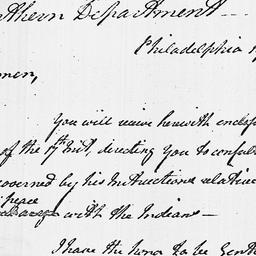 thern Department—
Philadelphia
men,
You will receive herewith enclos
of the 17th Inst, directing You to consult
overned by his Instructions relative
peace
with the Indians—
I have the honor to be Gentle